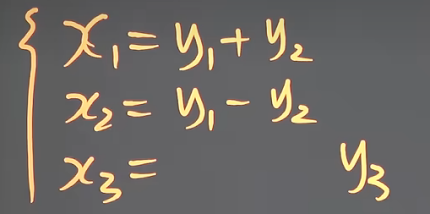 x₁ = y₁ + y₂
x₂ = y₁ - y₂
x₃ = y₃